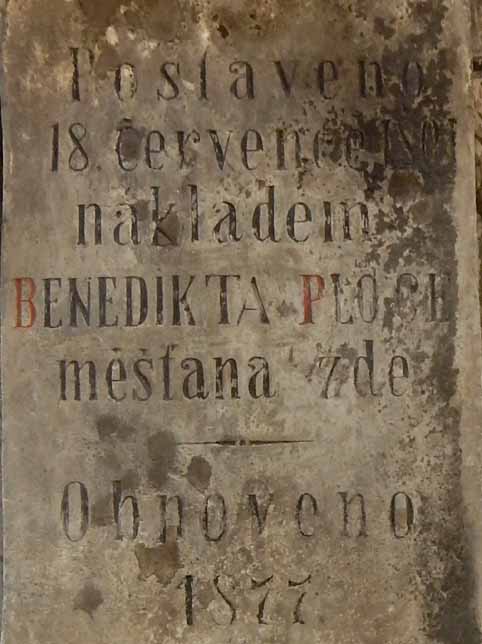 Postaveno
18. července 1801
nákladem
BENEDIKTA PLOCE
měšťana zde
Obnoveno
1877.